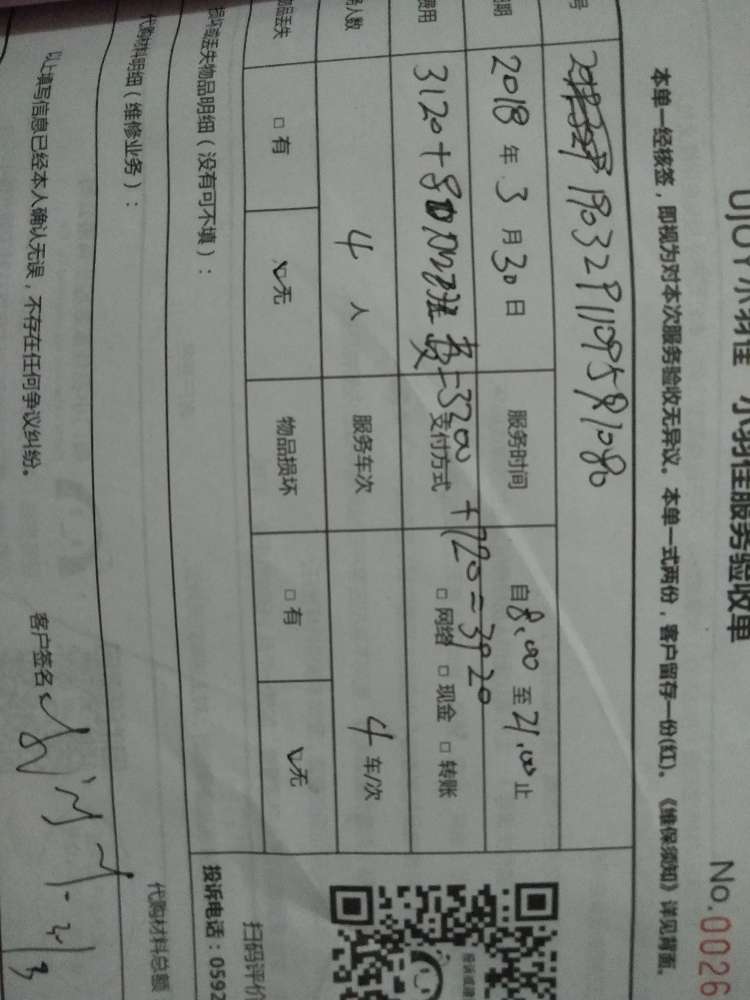 UJOY小羽佳 小羽佳服务验收单
No.0026
本单一经核签，即视为对本次服务验收无异议。本单一式两份，客户留存一份(红)。《维保须知》详见背面。
号 1903291109581080
日期 2018年3月30日 服务时间 自8:00至21:00止
费用 3120+80加班费=3200+720=3920 支付方式 □网络 □现金 □转账
务人数 4人 服务车次 4车/次
物品丢失 □有 ☑无 物品损坏 □有 ☑无
损坏或丢失物品明细（没有可不填）：
代购材料明细（维修业务）： 代购材料总额
以上填写信息已经本人确认无误，不存在任何争议纠纷。 客户签名
扫码评价
投诉电话：0592